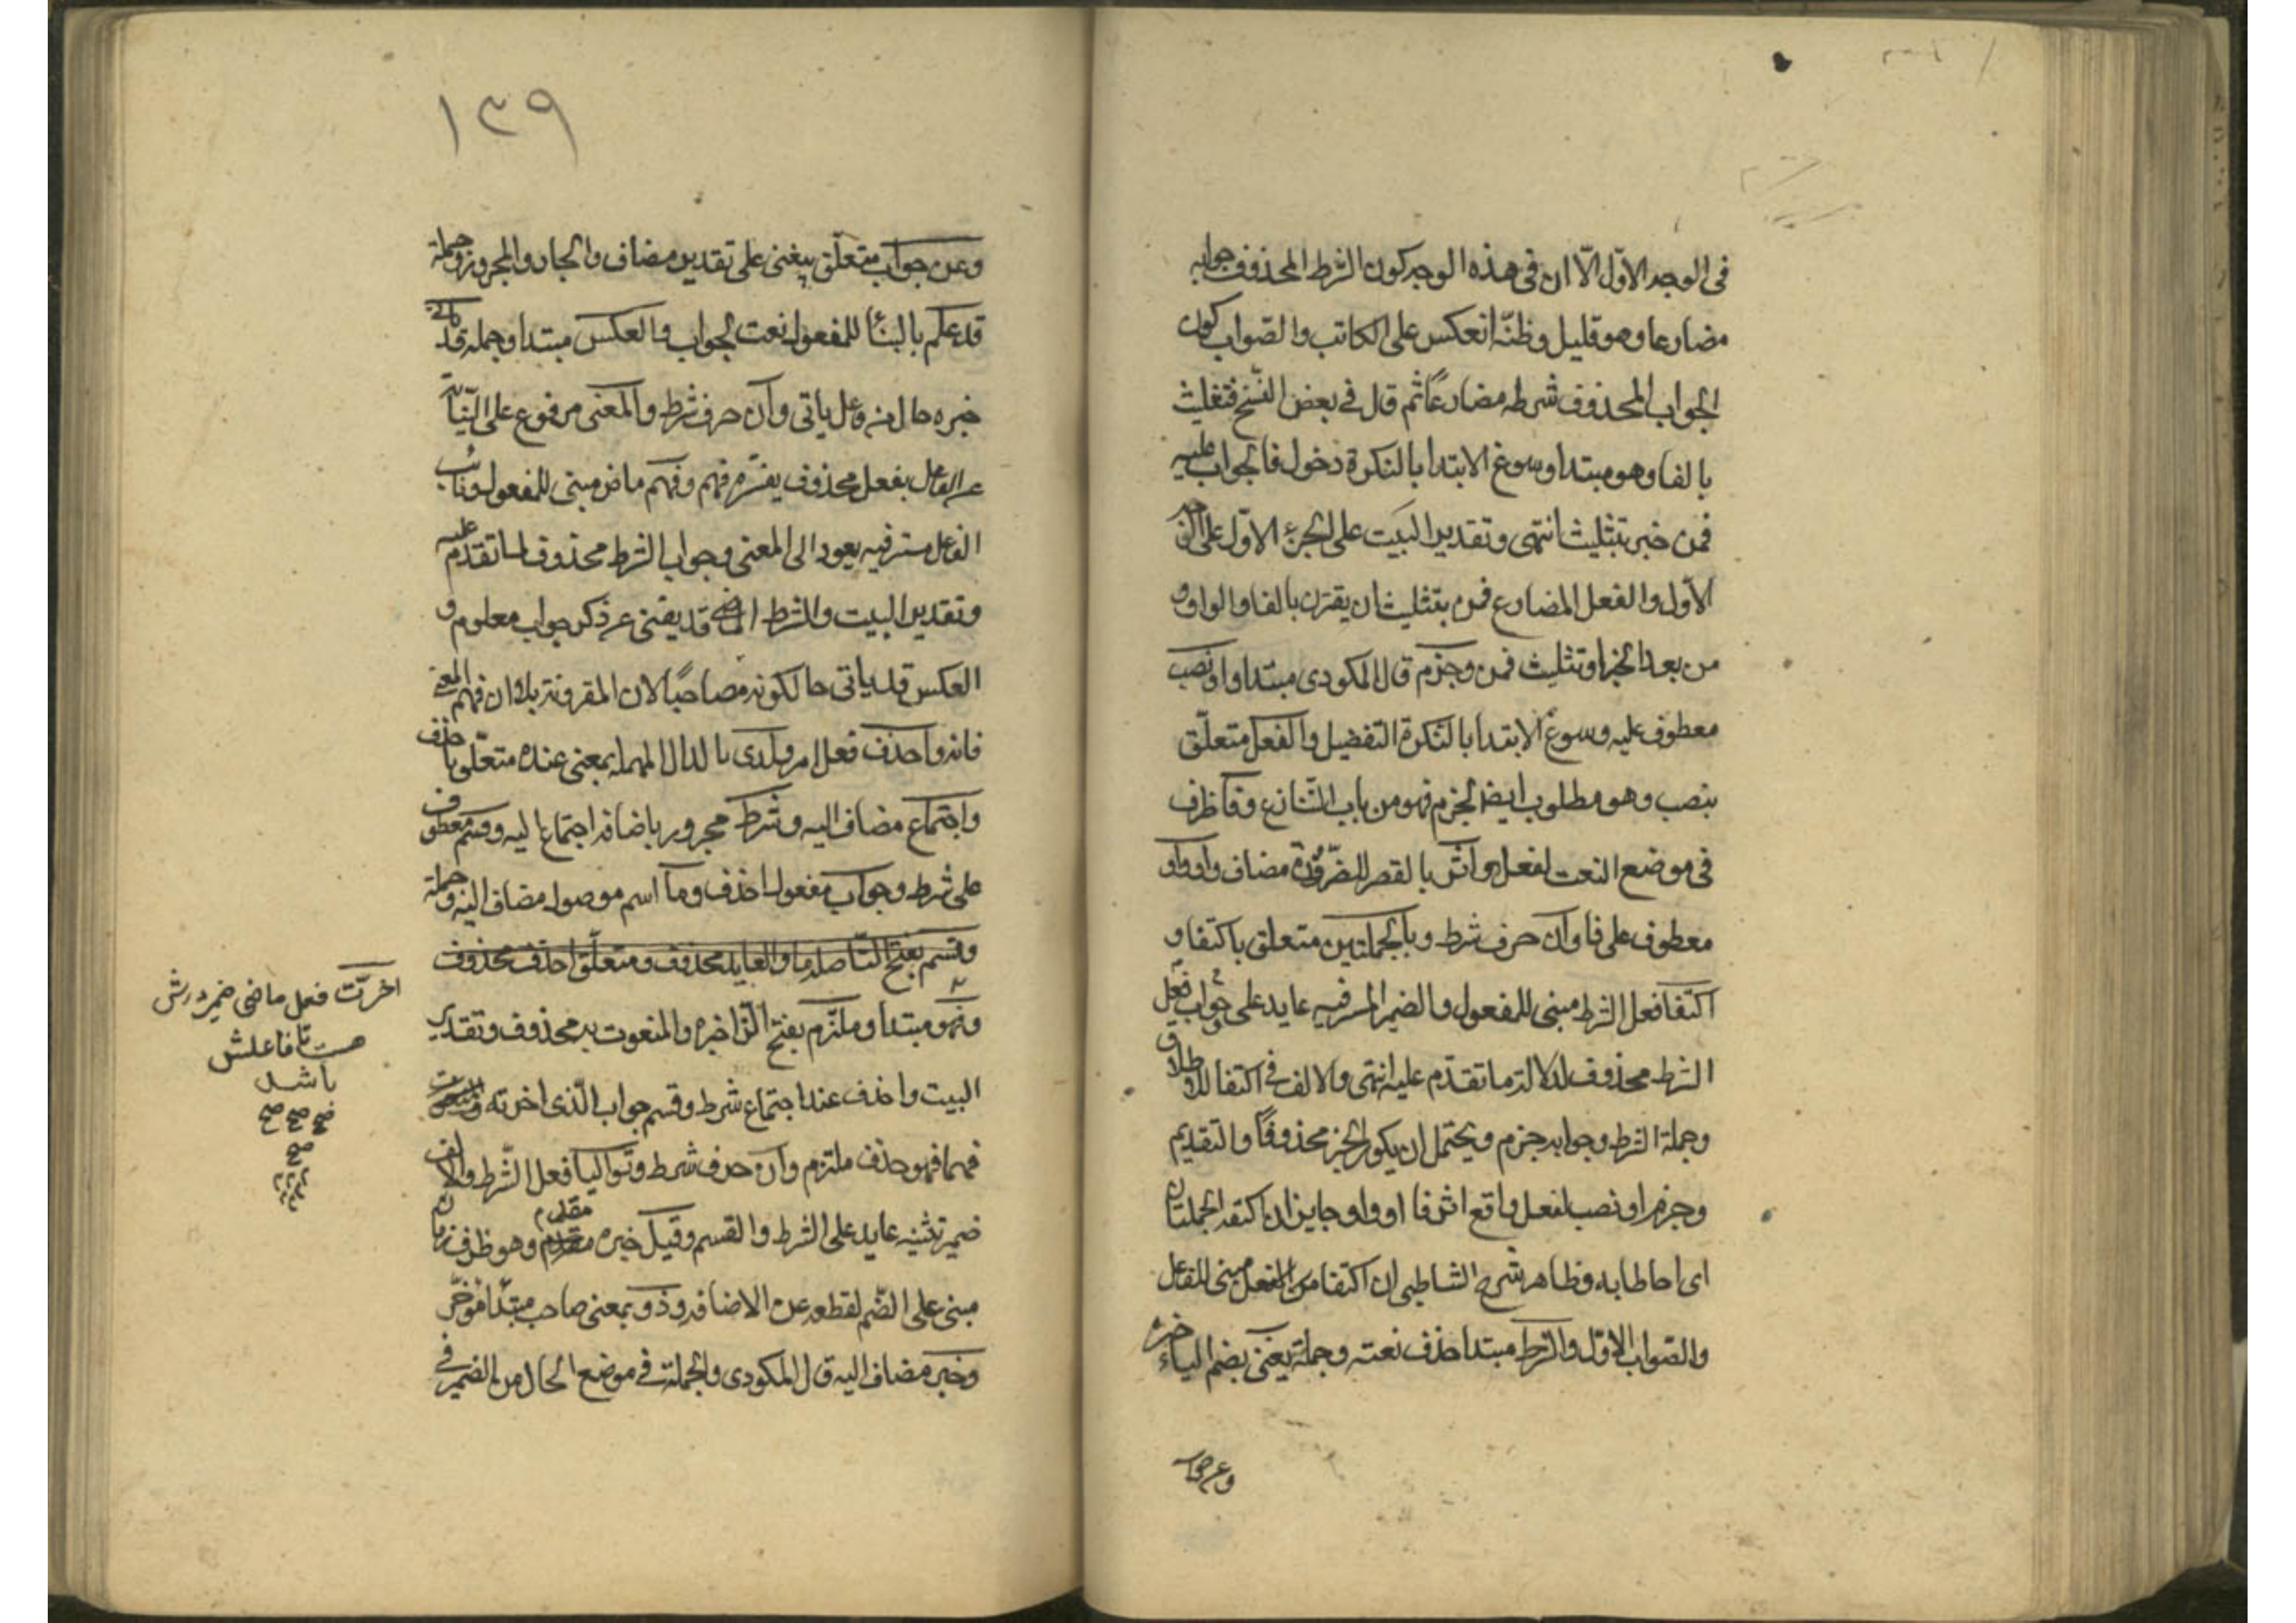 فى الوجه الاوّل الّا ان فى هذه الوجه كون الشرط المحذوف جوابه
مضارعا وهو قليل وظنّه انعكس على الكاتب والصّواب كون
الجواب المحذوف شرطه مضارعًا ثم قال فى بعض النّسخ فتثليث
بالفا وهو مبتدا وسوغ الابتدا بالنكرة دخول فا الجواب عليه
فمن خبر تثليث انتهى وتقدير البيت على الجزء الاوّل على
الاوّل والفعل المضارع فمن بتثليث ان يقترن بالفا والواو و
من بعد الجزا وتثليث فمن وجزم قال المكودى مبتدا واو نصب
معطوف عليه وسوغ الابتدا بالنكرة التفضيل والفعل متعلّق
بنصب وهو مطلوب ايضا لجزم فهو من باب التّنازع وفا ظرف
فى موضع النعت لفعل واثر بالقصر للضّرورة مضاف واو واو
معطوف على فا وان حرف شرط وبالجملتين متعلق باكتنفا و
اكتنفا فعل الشرط مبنى للمفعول والضمير المستتر فيه عايد على جواب فعل
الشرط محذوف لدلالة ما تقدّم عليه انتهى والالف فى اكتنفا للاطلاق
وجملة الشرط وجوابه جزم ويحتمل ان يكون الخبر محذوفًا والتقديم
وجزم او نصب لفعل واقع اثر فا او واو جايز ان اكتنفه الجملتان
اى احاطا به وظاهر شرح الشاطبى ان اكتنفا من الفعل مبنى للفاعل
والصّواب الاوّل والشرط مبتدا حذف نعته وجملة يغنى بضم الياء خبره
وعن جواب
١٣٩
وعن جواب متعلّق بيغنى على تقدير مضاف والجار والمجرور وجملة
قد علم بالبنأ للمفعول نعت لجواب والعكس مبتدا وجملة قد ياتى
خبره حال من فاعل ياتى وان حرف شرط والمعنى مرفوع على النّيابة
عن الفاعل بفعل محذوف يفسّره فهم وفهم ماض مبنى للمفعول ونائب
الفاعل مستتر فيه يعود الى المعنى وجواب الشرط محذوف لما تقدّم عليه
وتقدير البيت والشرط الماضى قد يغنى عن ذكر جواب معلوم و
العكس قد ياتى حالكونه مصاحبًا لان المقرونة بلا ان فهم المعنى
فانه واحذف فعل امر ولدى بالدال المهملة بمعنى عند متعلّق باحذف
واجتماع مضاف اليه وشرط مجرور باضافة اجتماع اليه وقسم معطوف
على شرط وجواب مفعول احذف وما اسم موصول مضاف اليه وجملة
وقسم بفتح التّا صلة ما والعايد محذوف ومتعلّق احذف محذوف
وفهو مبتدا وملتزم بفتح الزّا خبره والمنعوت به محذوف وتقدير
البيت واحذف عند اجتماع شرط وقسم جواب الّذى اخرته
منهما فهو حذف ملتزم وان حرف شرط وتواليا فعل الشّرط والالف
ضمير تثنيه عايد على الشرط والقسم وقبل خبره مقدم وهو ظرف زمان
مقدم
مبنى على الضّم لقطعه عن الاضافه وذو بمعنى صاحب مبتدأ مؤخّر
وخبر مضاف اليه قال المكودى والجملة فى موضع الحال من الضمير فى
اخرّت فعل ماضى ضمير درش
هست تا فاعلش
باشد
صح صح صح
صح